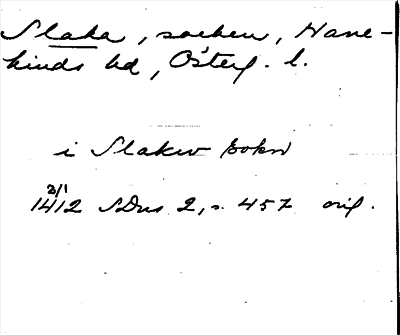 Slaka, socken, Hane-
kinds hd, Österg. l.
i Slakw sokn
3/1
1412 SDns 2, s. 457 orig.